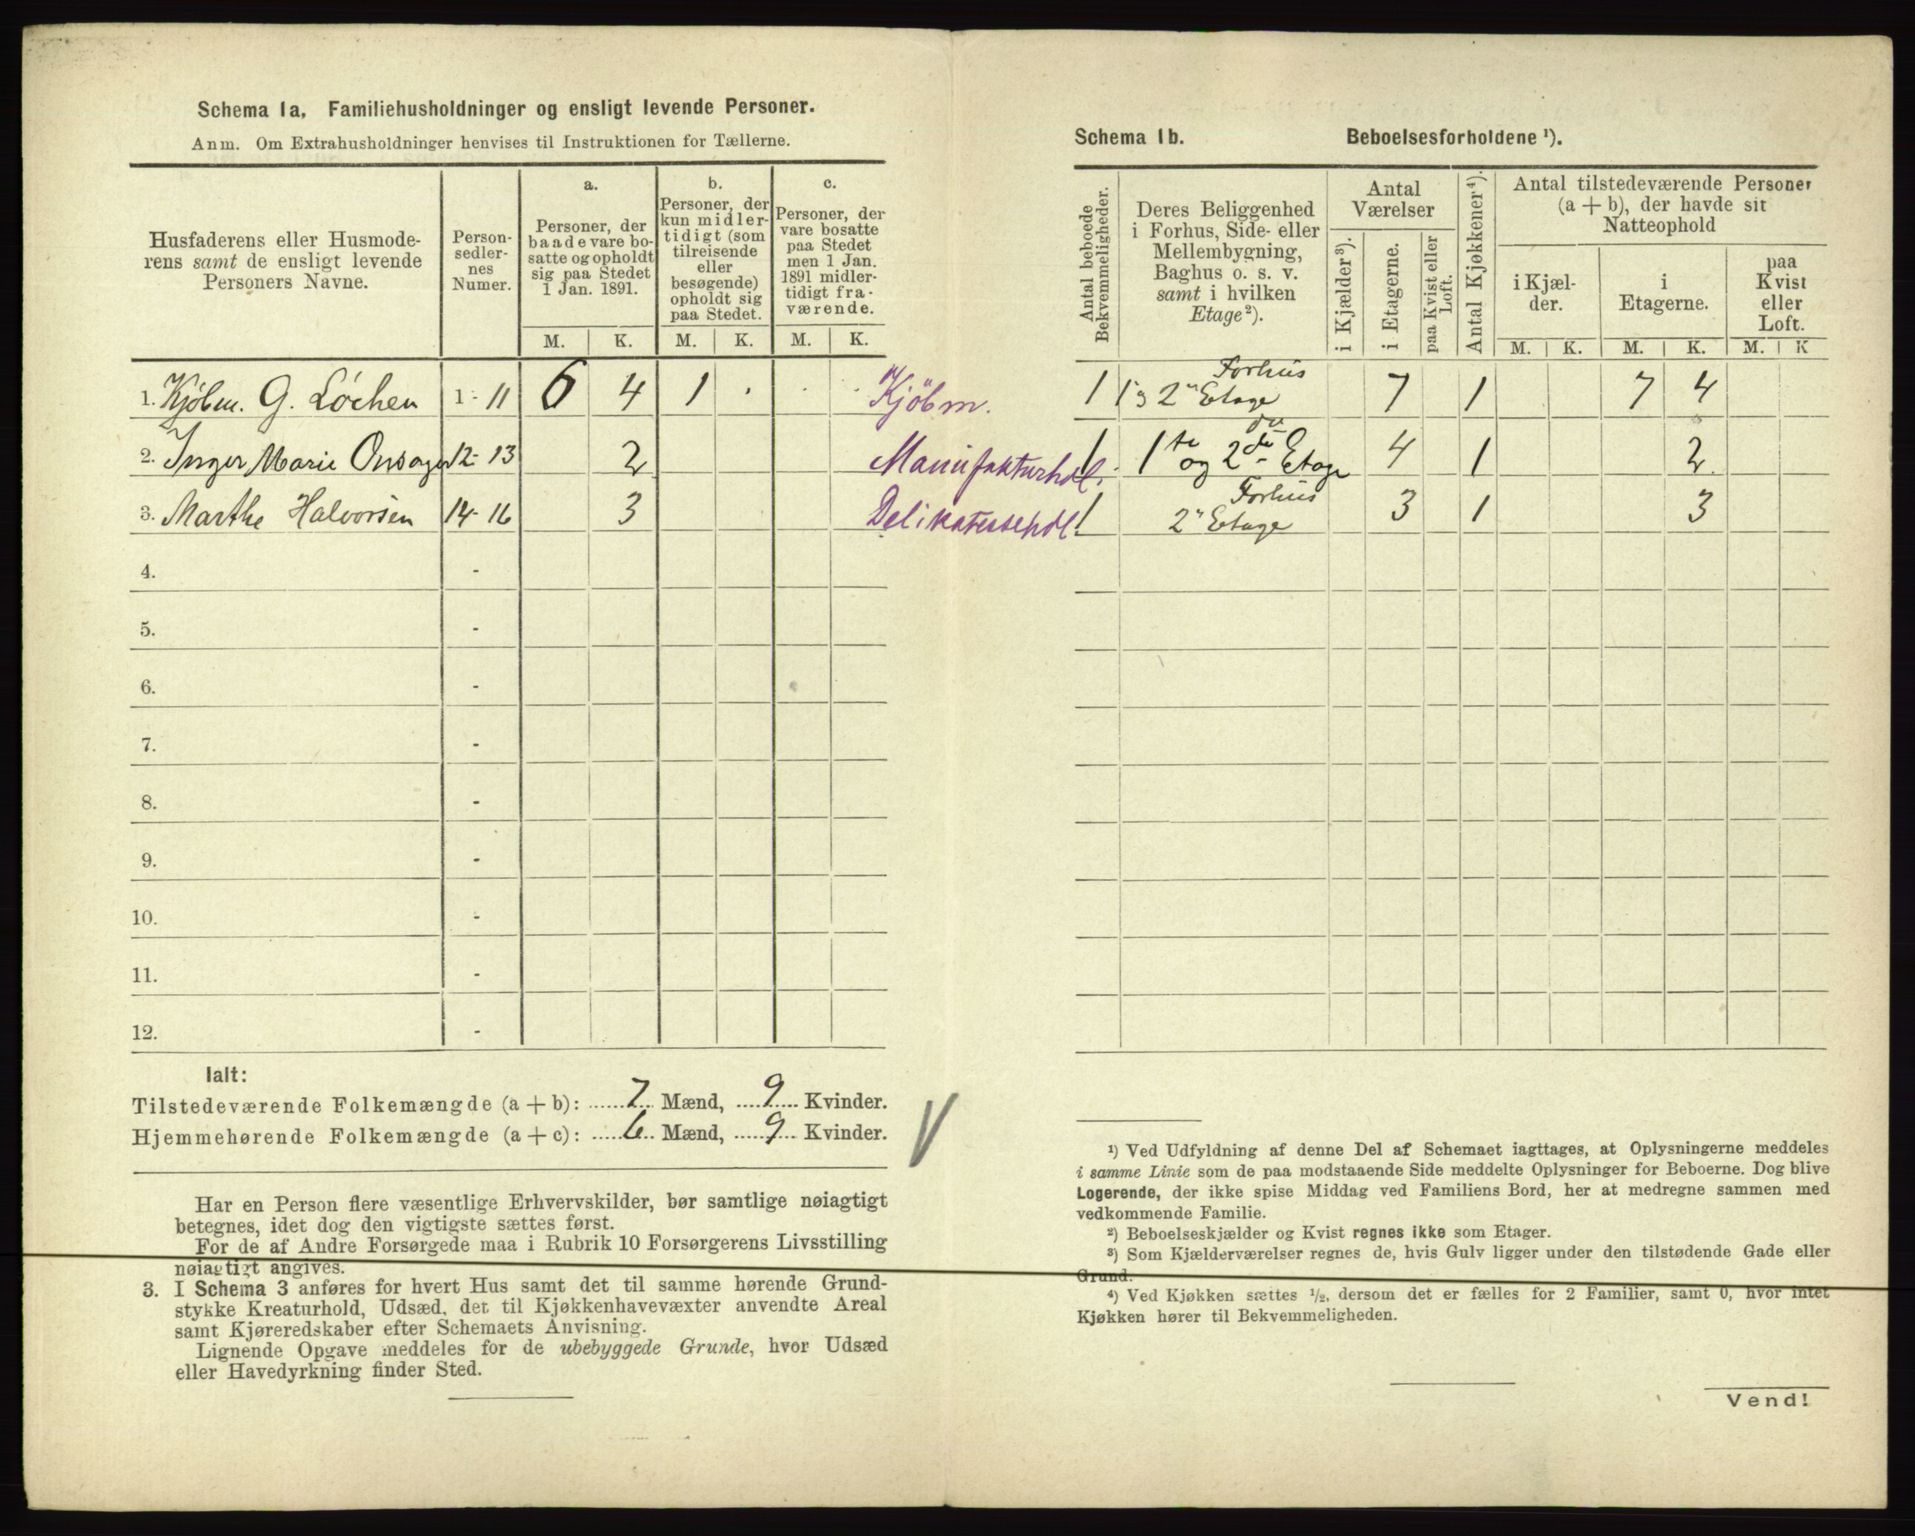 Schema 1a. Familiehusholdninger og ensligt levende Personer.
Anm. Om Extrahusholdninger henvises til Instruktionen for Tællerne.
Husfaderens eller Husmode-
rens samt de ensligt levende
Personers Navne.
Person-
sedler-
nes
Numer.
a.
Personer, der
baade vare bo-
satte og opholdt
sig paa Stedet
1 Jan. 1891.
b.
Personer, der
kun midler-
tidigt (som
tilreisende
eller
besøgende)
opholdt sig
paa Stedet.
c.
Personer, der
vare bosatte
paa Stedet
men 1 Jan.
1891 midler-
tidigt fra-
værende.
M. K. M. K. M. K.
1. Kjøbm. G. Løchen 1-11 6 4 1 . . . Kjøbm.
2. Inger Marie Onsager 12-13 2 Manufakturhdl.
3. Marthe Halvorsen 14-16 3 Delikatessehdl.
4. -
5. -
6. -
7. -
8. -
9. -
10. -
11. -
12. -
Ialt:
Tilstedeværende Folkemængde (a + b): 7 Mænd, 9 Kvinder.
Hjemmehørende Folkemængde (a + c): 6 Mænd, 9 Kvinder.
Har en Person flere væsentlige Erhvervskilder, bør samtlige nøiagtigt
betegnes, idet dog den vigtigste sættes først.
For de af Andre Forsørgede maa i Rubrik 10 Forsørgerens Livsstilling
nøiagtigt angives.
3. I Schema 3 anføres for hvert Hus samt det til samme hørende Grund-
stykke Kreaturhold, Udsæd, det til Kjøkkenhavevæxter anvendte Areal
samt Kjøreredskaber efter Schemaets Anvisning.
Lignende Opgave meddeles for de ubebyggede Grunde, hvor Udsæd
eller Havedyrkning finder Sted.
Schema 1b. Beboelsesforholdene ¹).
Antal beboede
Bekvemmeligheder.
Deres Beliggenhed
i Forhus, Side- eller
Mellembygning,
Baghus o. s. v.
samt i hvilken
Etage²).
Antal
Værelser
i Kjælder³).
i Etagerne.
paa Kvist eller
Loft.
Antal Kjøkkener⁴).
Antal tilstedeværende Personer
(a + b), der havde sit
Natteophold
i Kjæl-
der.
i
Etagerne.
paa
Kvist
eller
Loft.
M. K. M. K. M. K
Forhus
1 1 og 2 Etage 7 1 7 4
do
1 1te og 2den Etage 4 1 2
Forhus
1 2 Etage 3 1 3
¹) Ved Udfyldning af denne Del af Schemaet iagttages, at Oplysningerne meddeles
i samme Linie som de paa modstaaende Side meddelte Oplysninger for Beboerne. Dog blive
Logerende, der ikke spise Middag ved Familiens Bord, her at medregne sammen med
vedkommende Familie.
²) Beboelseskjælder og Kvist regnes ikke som Etager.
³) Som Kjælderværelser regnes de, hvis Gulv ligger under den tilstødende Gade eller
Grund.
⁴) Ved Kjøkken sættes ½, dersom det er fælles for 2 Familier, samt 0, hvor intet
Kjøkken hører til Bekvemmeligheden.
Vend!